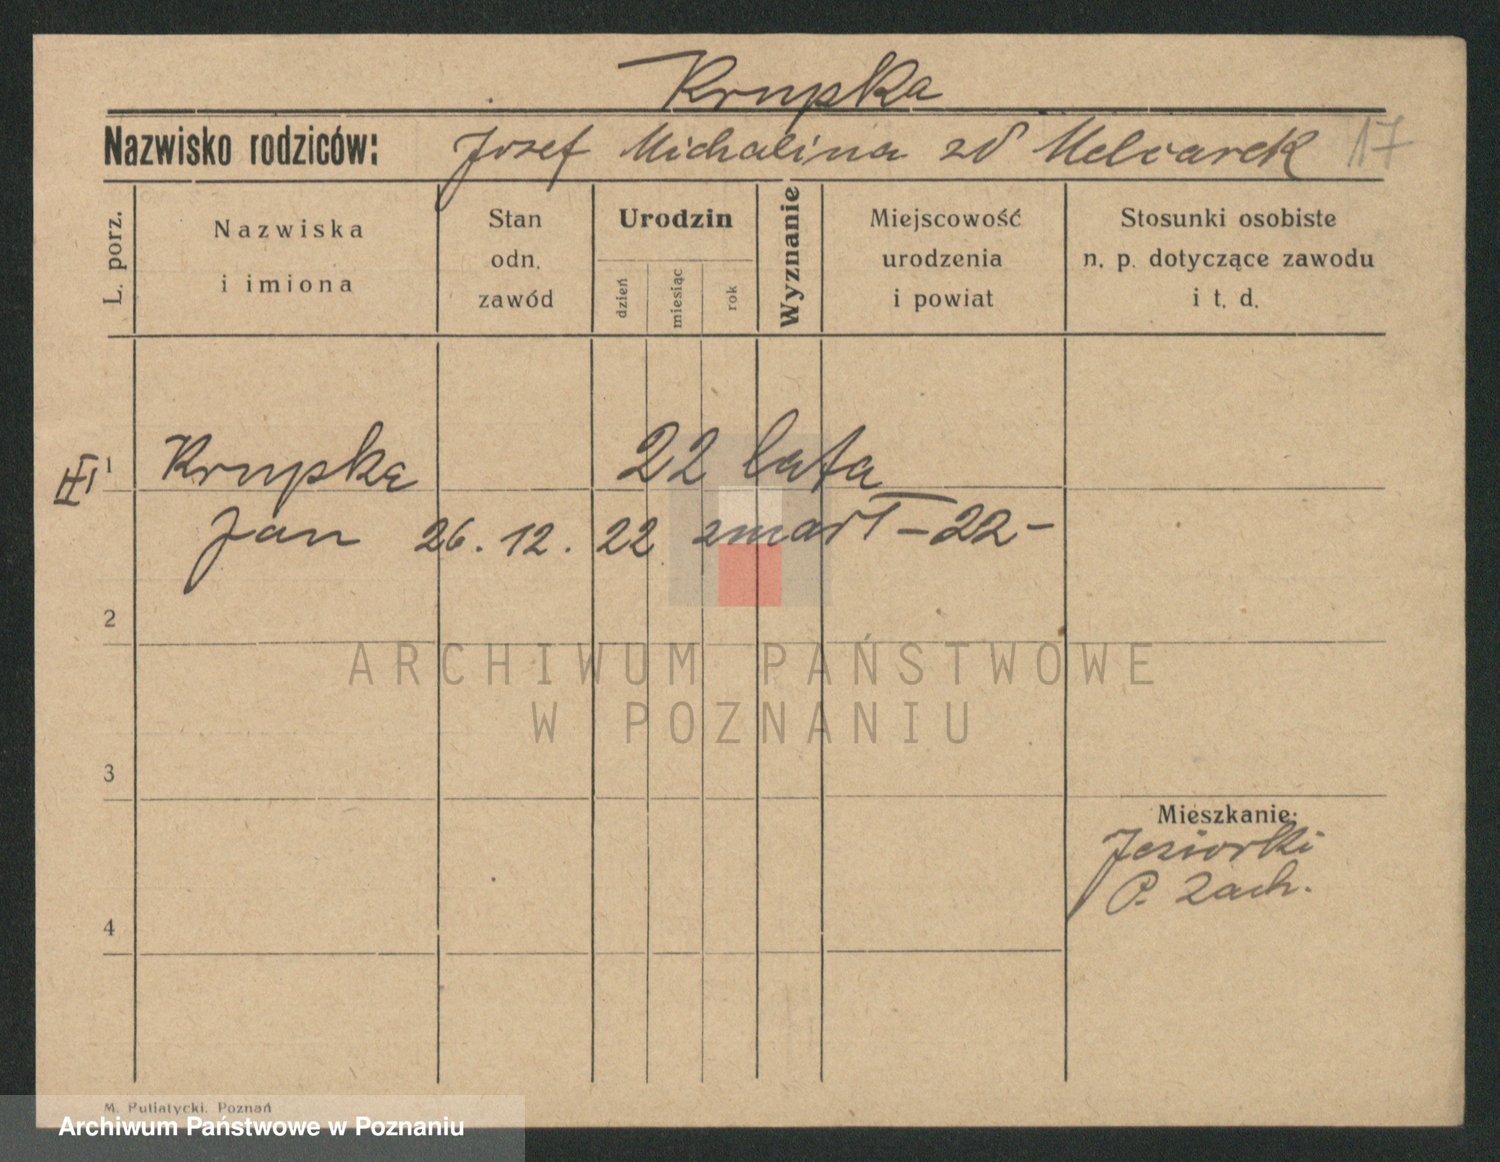 Krupka
Nazwisko rodziców: Josef Michalina zd Melcarek 17
L. porz.
Nazwiska i imiona
Stan odn. zawód
Urodzin
dzień
miesiąc
rok
Wyznanie
Miejscowość urodzenia i powiat
Stosunki osobiste n. p. dotyczące zawodu i t. d.
III 1 Krupka 22 lata
Jan 26. 12. 22 zmart - 22 -
2
ARCHIWUM PAŃSTWOWE
W POZNANIU
3
Mieszkanie:
Jeziorki
P. Zach.
4
M. Putiatycki, Poznań
Archiwum Państwowe w Poznaniu